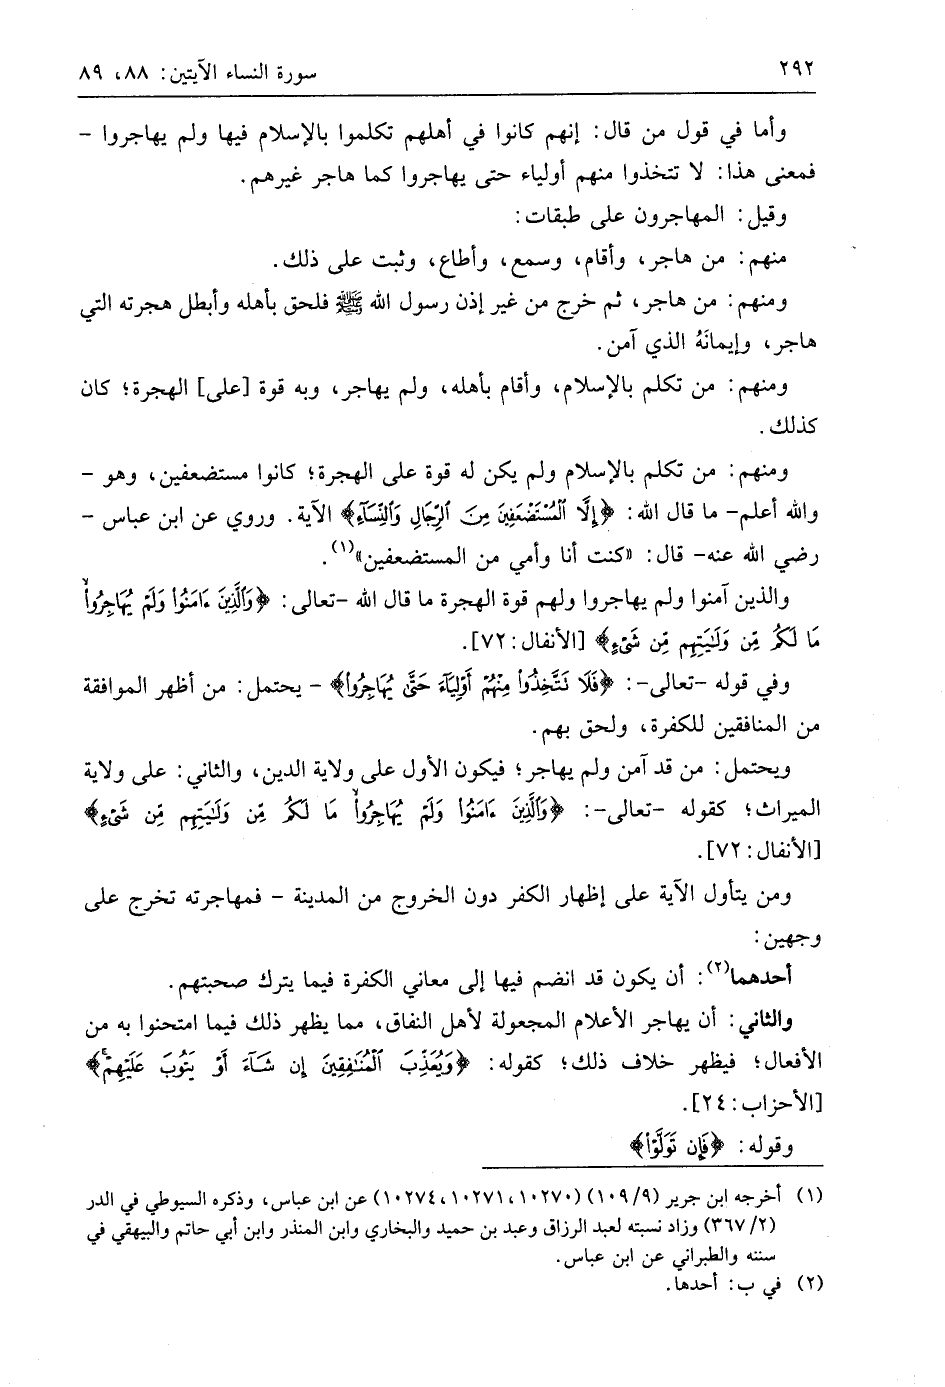 ٢٩٢ سورة النساء الآيتين: ٨٨، ٨٩
وأما في قول من قال: إنهم كانوا في أهلهم تكلموا بالإسلام فيها ولم يهاجروا –
فمعنى هذا: لا تتخذوا منهم أولياء حتى يهاجروا كما هاجر غيرهم.
وقيل: المهاجرون على طبقات:
منهم: من هاجر، وأقام، وسمع، وأطاع، وثبت على ذلك.
ومنهم: من هاجر، ثم خرج من غير إذن رسول الله ﷺ فلحق بأهله وأبطل هجرته التي
هاجر، وإيمانَهُ الذي آمن.
ومنهم: من تكلم بالإسلام، وأقام بأهله، ولم يهاجر، وبه قوة [على] الهجرة؛ كان
كذلك.
ومنهم: من تكلم بالإسلام ولم يكن له قوة على الهجرة؛ كانوا مستضعفين، وهو –
والله أعلم– ما قال الله: ﴿إِلَّا ٱلْمُسْتَضْعَفِينَ مِنَ ٱلرِّجَالِ وَٱلنِّسَآءِ﴾ الآية. وروي عن ابن عباس –
رضي الله عنه– قال: «كنت أنا وأمي من المستضعفين»(١).
والذين آمنوا ولم يهاجروا ولهم قوة الهجرة ما قال الله –تعالى: ﴿وَٱلَّذِينَ ءَامَنُوا۟ وَلَمْ يُهَاجِرُوا۟
مَا لَكُم مِّن وَلَـٰيَتِهِم مِّن شَىْءٍ﴾ [الأنفال: ٧٢].
وفي قوله –تعالى–: ﴿فَلَا نَتَّخِذُوا۟ مِنْهُمْ أَوْلِيَآءَ حَتَّىٰ يُهَاجِرُوا۟﴾ – يحتمل: من أظهر الموافقة
من المنافقين للكفرة، ولحق بهم.
ويحتمل: من قد آمن ولم يهاجر؛ فيكون الأول على ولاية الدين، والثاني: على ولاية
الميراث؛ كقوله –تعالى–: ﴿وَٱلَّذِينَ ءَامَنُوا۟ وَلَمْ يُهَاجِرُوا۟ مَا لَكُم مِّن وَلَـٰيَتِهِم مِّن شَىْءٍ﴾
[الأنفال: ٧٢].
ومن يتأول الآية على إظهار الكفر دون الخروج من المدينة – فمهاجرته تخرج على
وجهين:
أحدهما(٢): أن يكون قد انضم فيها إلى معاني الكفرة فيما يترك صحبتهم.
والثاني: أن يهاجر الأعلام المجعولة لأهل النفاق، مما يظهر ذلك فيما امتحنوا به من
الأفعال؛ فيظهر خلاف ذلك؛ كقوله: ﴿وَيُعَذِّبَ ٱلْمُنَـٰفِقِينَ إِن شَآءَ أَوْ يَتُوبَ عَلَيْهِمْ﴾
[الأحزاب: ٢٤].
وقوله: ﴿فَإِن تَوَلَّوْا۟﴾
(١) أخرجه ابن جرير (٩/ ١٠٩) (١٠٢٧٠، ١٠٢٧١، ١٠٢٧٤) عن ابن عباس، وذكره السيوطي في الدر
(٢/ ٣٦٧) وزاد نسبته لعبد الرزاق وعبد بن حميد والبخاري وابن المنذر وابن أبي حاتم والبيهقي في
سننه والطبراني عن ابن عباس.
(٢) في ب: أحدها.